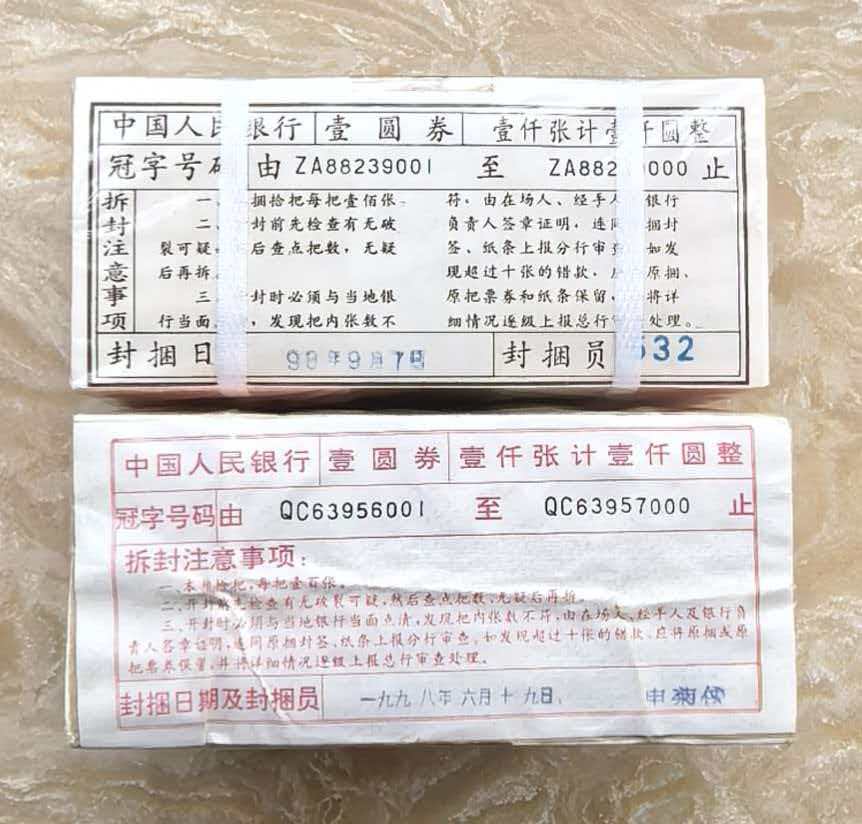 中国人民银行 壹圆券 壹仟张计壹仟圆整
冠字号码 由 ZA88239001 至 ZA882 000 止
拆封注意事项
一、 捆拾把每把壹佰张。
二、 封前先检查有无破
裂可疑， 后查点把数，无疑
后再拆。
三、 封时必须与当地银
行当面 ，发现把内张数不
符，由在场人、经手人 银行
负责人签章证明，连同 捆封
签、纸条上报分行审查 如发
现超过十张的错款， 原捆、
原把票券和纸条保留， 将详
细情况逐级上报总行 处理。
封捆日 98年9月7日 封捆员 532
中国人民银行 壹圆券 壹仟张计壹仟圆整
冠字号码由 QC63956001 至 QC63957000 止
拆封注意事项：
一、本捆拾把，每把壹百张。
二、开封前先检查有无破裂可疑，然后查点把数，无疑后再拆。
三、开封时必须与当地银行当面点清，发现把内张数不符，由在场人、经手人及银行负
责人签章证明，连同原捆封签、纸条上报分行审查，如发现超过十张的错款，应将原捆或原
把票券保留，并将详细情况逐级上报总行审查处理。
封捆日期及封捆员 一九九八年六月十九日 申